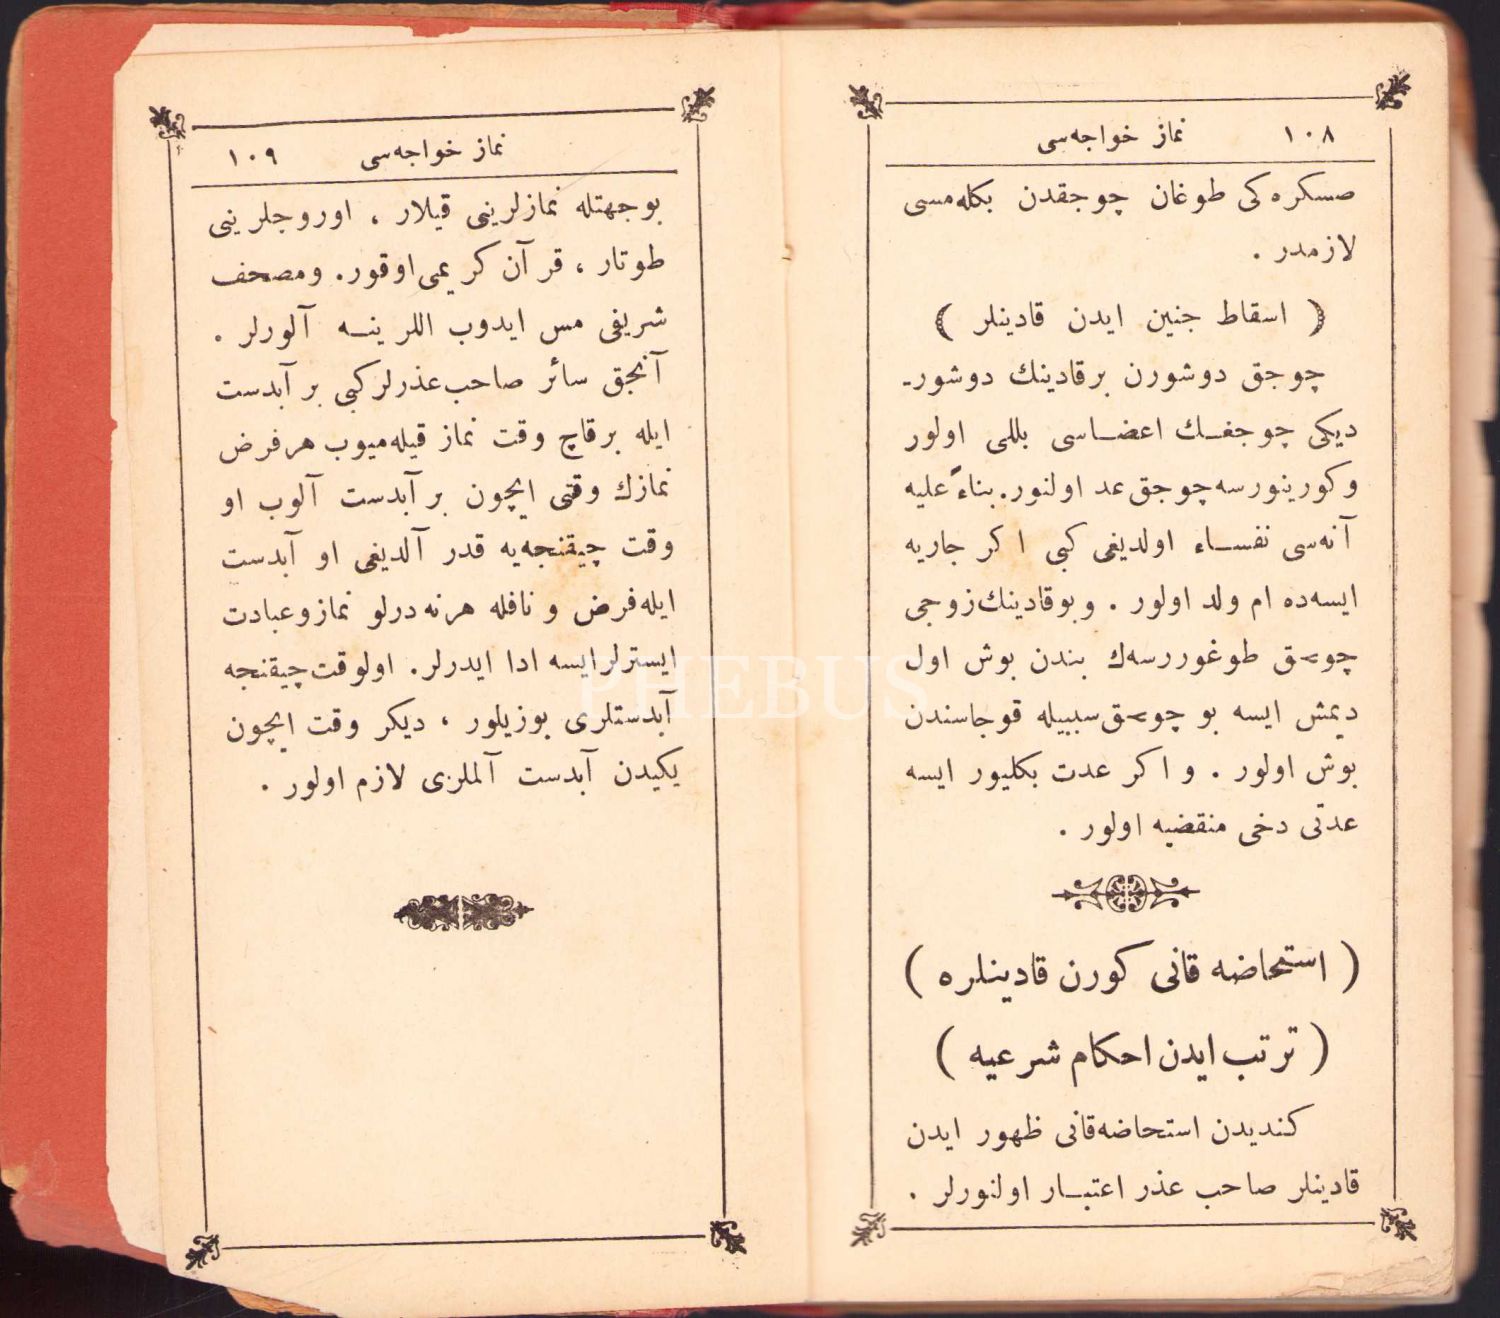 ١٠٨ نماز خواجه‌سی
صسکره‌کی طوغان چوجقدن بکله‌مسی
لازمدر .
( اسقاط جنین ایدن قادینلر )
چوجق دوشورن برقادینك دوشور-
دیکی چوجغـك اعضـاسی بللی اولور
وکورینورسه چوجق عد اولنور. بناءً علیه
آنه‌سی نفسـاء اولدیغی کبی اکر جاریه
ایسه‌ده ام ولد اولور . وبوقادینك زوجی
چوجق طوغوررسه‌ك بندن بوش اول
دیمش ایسه بو چوجق سببیله قوجاسندن
بوش اولور . و اکر عدت بکلیور ایسه
عدتی دخی منقضیه اولور .
( استحاضه قانی کورن قادینلره )
( ترتب ایدن احکام شرعیه )
کندیدن استحاضه قانی ظهور ایدن
قادینلر صاحب عذر اعتبـار اولنورلر .
نماز خواجه‌سی ١٠٩
بوجهتله نمازلرینی قیلار ، اوروجلرینی
طوتار ، قرآن کریمی اوقور. ومصحف
شریفی مس ایدوب اللرینـه آلورلر .
آنجق سائر صاحب عذرلر کبی بر آبدست
ایله برقاچ وقت نماز قیله‌میوب هرفرض
نمازك وقتی ایچون بر آبدست آلوب او
وقت چیقنجه‌یه قدر آلدیغی او آبدست
ایله فرض و نافله هرنه درلو نماز وعبادت
ایسترلرایسه ادا ایدرلر. اولوقت چیقنجه
آبدستلری بوزیلور ، دیکر وقت ایچون
یکیدن آبدست آلملری لازم اولور .
PHEBUS